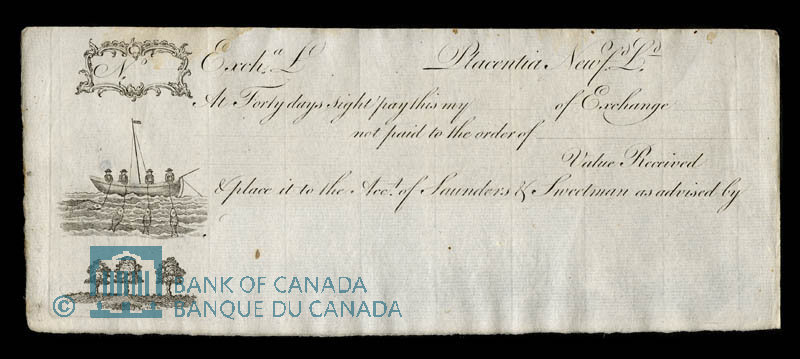 No
Excha. £ Placentia Newfds Ld
At Forty days sight pay this my of Exchange
not paid to the order of
Value Received
& place it to the Acct. of Saunders & Sweetman as advised by
© BANK OF CANADA
BANQUE DU CANADA